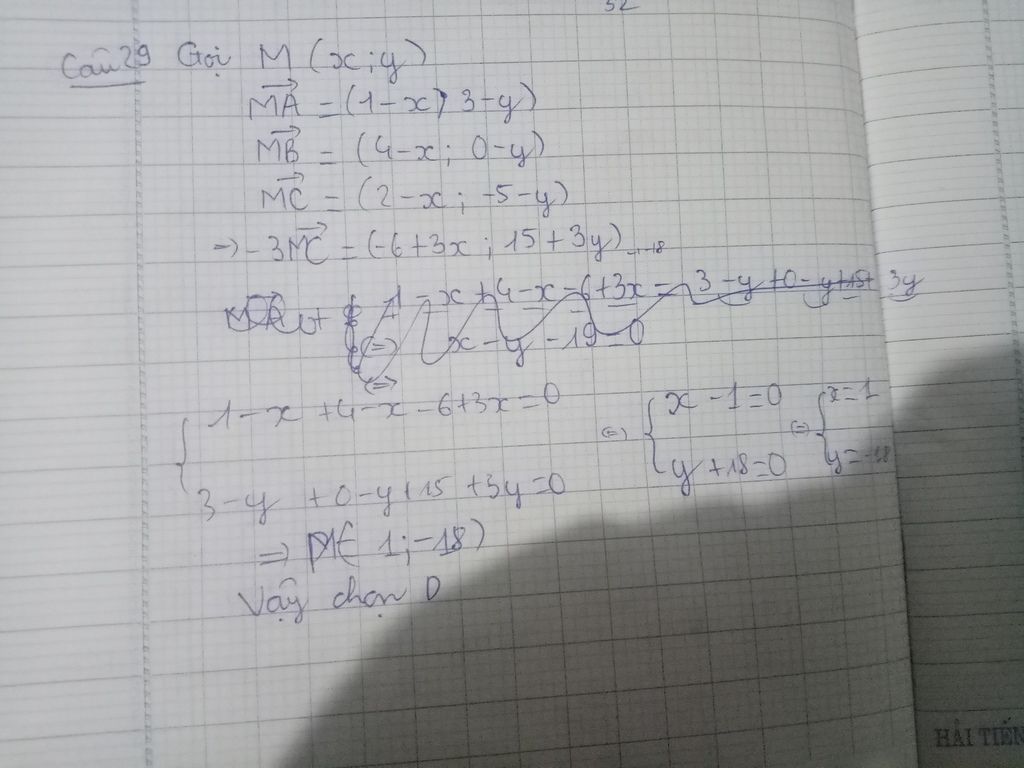 32
Câu 29 Gọi M (x;y)
MA = (1-x; 3-y)
MB = (4-x; 0-y)
MC = (2-x; -5-y)
=> -3MC = (-6+3x; 15+3y)
1-x+4-x-6+3x = 3-y+0-y+15+3y
(=) x-y-19=0
(=)
1-x+4-x-6+3x=0 (=) x-1=0 (=) x=1
3-y+0-y+15+3y=0 y+18=0 y=-18
=> M( 1;-18)
Vậy chọn D
HẢI TIẾN